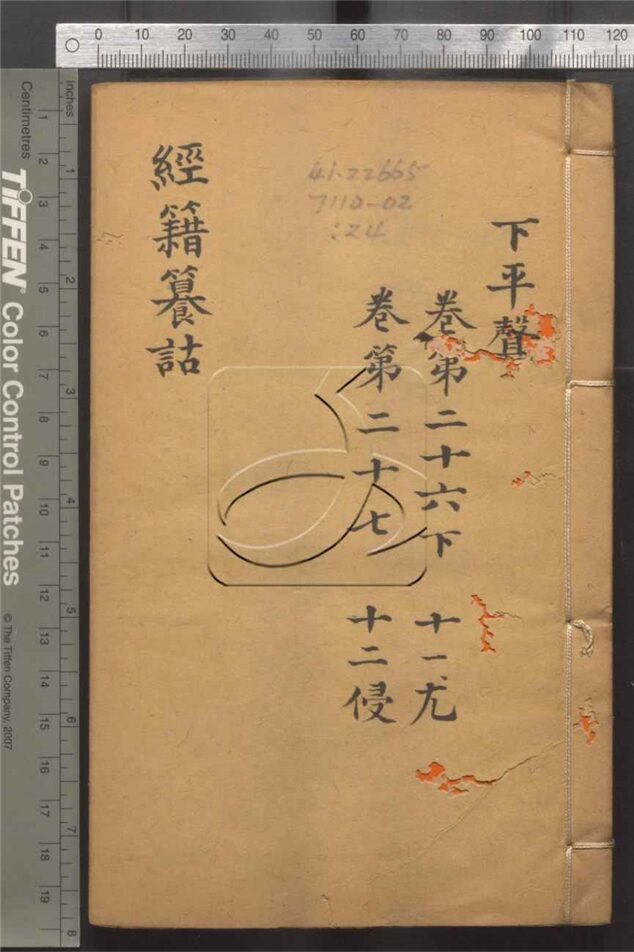 0 10 20 30 40 50 60 70 80 90 100 110 120
下平聲
卷第二十六下 十一尤
卷第二十七 十二侵
41.22665
7110-02
:24
經籍纂詁
inches
1 2 3 4 5 6 7 8
Centimetres
1 2 3 4 5 6 7 8 9 10 11 12 13 14 15 16 17 18 19
TIFFEN® Color Control Patches
© The Tiffen Company, 2007